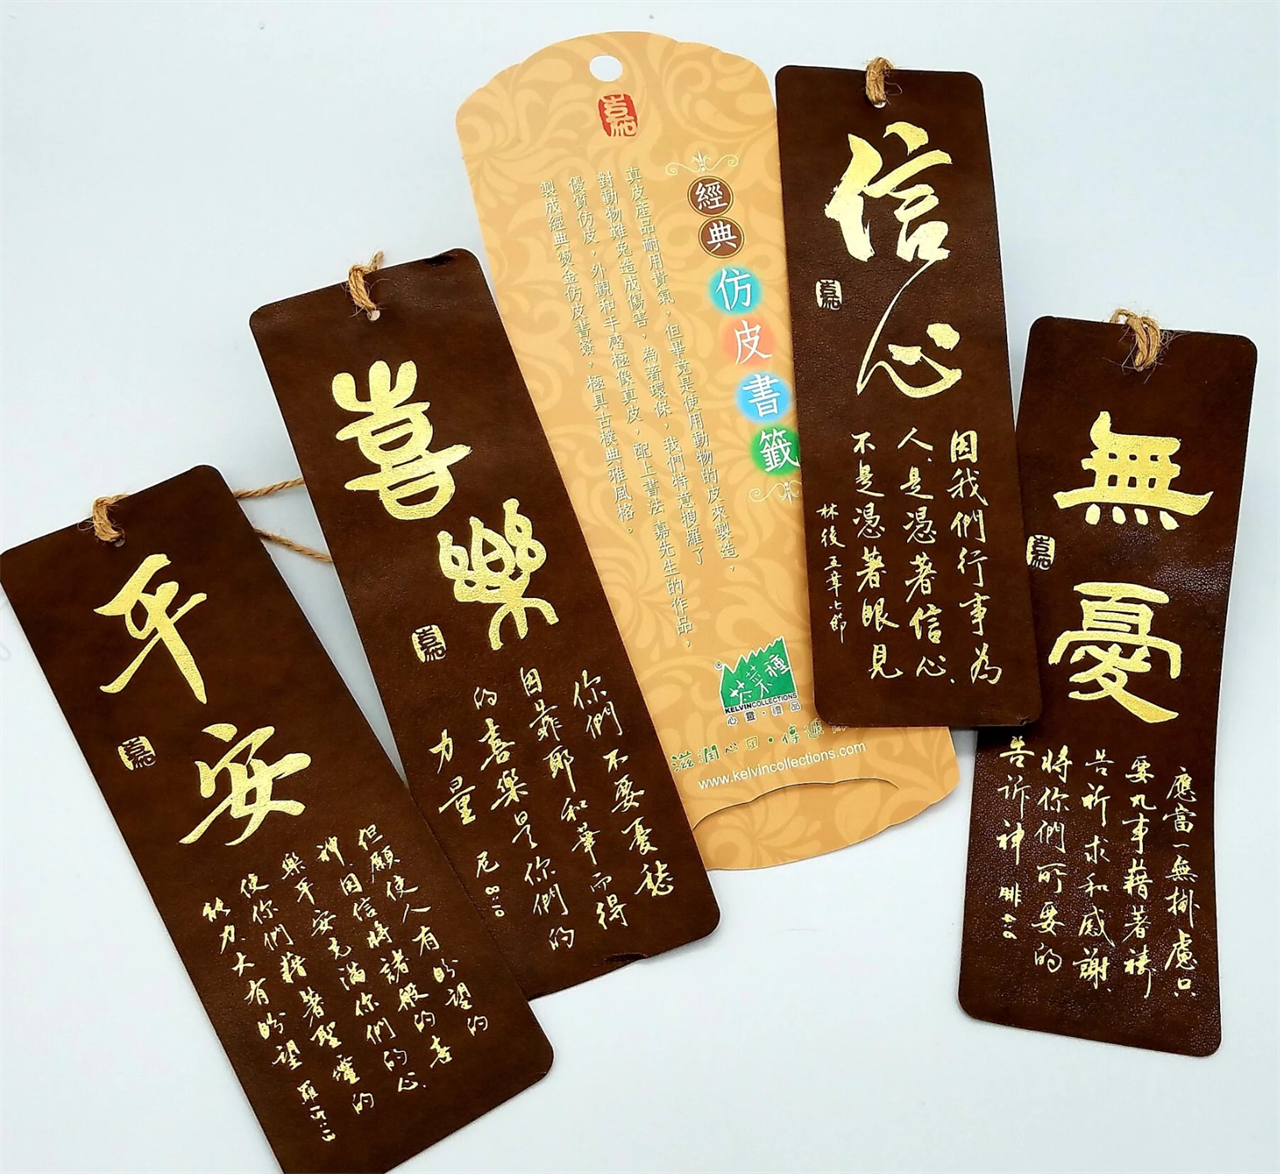 平安
但願使人有盼望的
神因信將諸般的喜
樂平安充滿你們的心
使你們藉著聖靈的
能力大有盼望 羅15:13
喜樂
你們不要憂愁
因靠耶和華而得
的喜樂是你們的
力量 尼8:10
嘉
經典
仿皮書籤
真皮產品耐用貴氣，但畢竟是使用動物的皮來製造，
對動物難免造成傷害，為著環保，我們特意搜羅了
優質仿皮，外觀和手感極像真皮，配上書法嘉先生的作品，
製成經典燙金仿皮書籤，極具古樸典雅風格。
芥菜種
®
KELVINCOLLECTIONS
心靈·禮品
滋潤心田·傳
www.kelvincollections.com
信心
因我們行事為
人.是憑著信心.
不是憑著眼見
林後五章七節
無憂
應當一無掛慮只
要凡事藉著禱
告祈求和感謝.
將你們所要的
告訴神 腓4:6